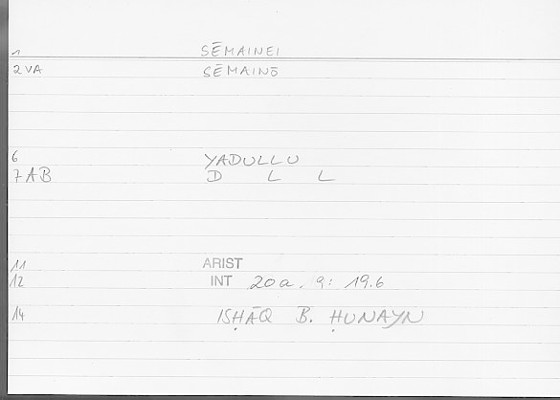 1 SĒMAINEI
2 VA SĒMAINŌ
6 YADULLU
7 AB D L L
11 ARIST
12 INT 20a, 9: 19.6
14 ISḤĀQ B. ḤUNAYN